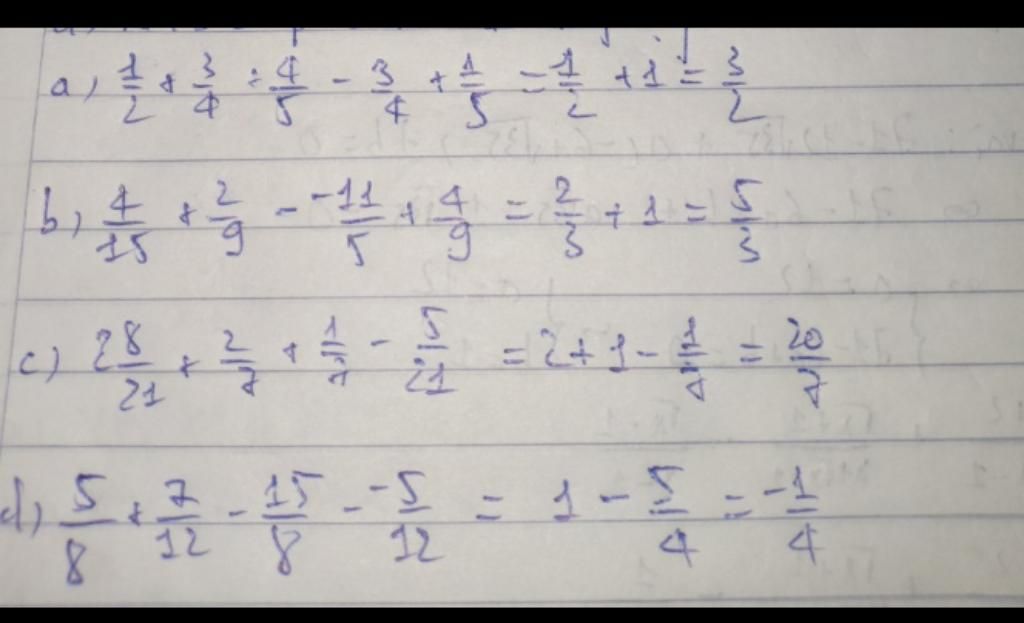 a) 1/2 + 3/4 + 4/5 - 3/4 + 1/5 = 1/2 + 1 = 3/2
b) 4/15 + 2/9 - -11/5 + 4/9 = 2/3 + 1 = 5/3
c) 2 8/21 + 2/7 + 1/7 - 5/21 = 2 + 1 - 1/7 = 20/7
d) 5/8 + 7/12 - 15/8 - -5/12 = 1 - 5/4 = -1/4